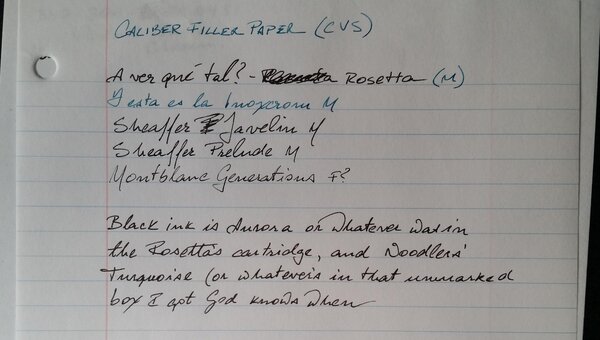 CALIBER FILLER PAPER (CVS)
A ver qué tal? - Rosetta (M)
Y esta es la Inoxcrom M
Sheaffer Javelin M
Sheaffer Prelude M
Montblanc Generations F?
Black ink is Aurora or whatever was in
the Rosetta's cartridge, and Noodlers'
Turquoise (or whatever's in that unmarked
box I got God knows when